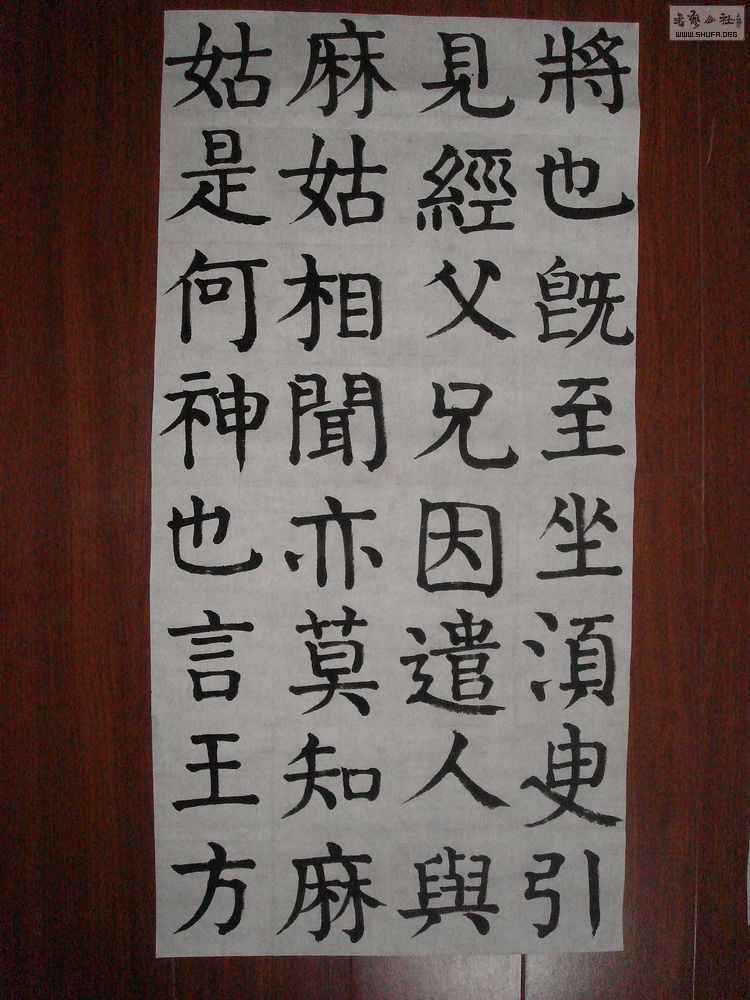 將也旣至坐湏臾引
見經父兄因遣人與
麻姑相聞亦莫知麻
姑是何神也言王方
WWW.SHUFA.ORG